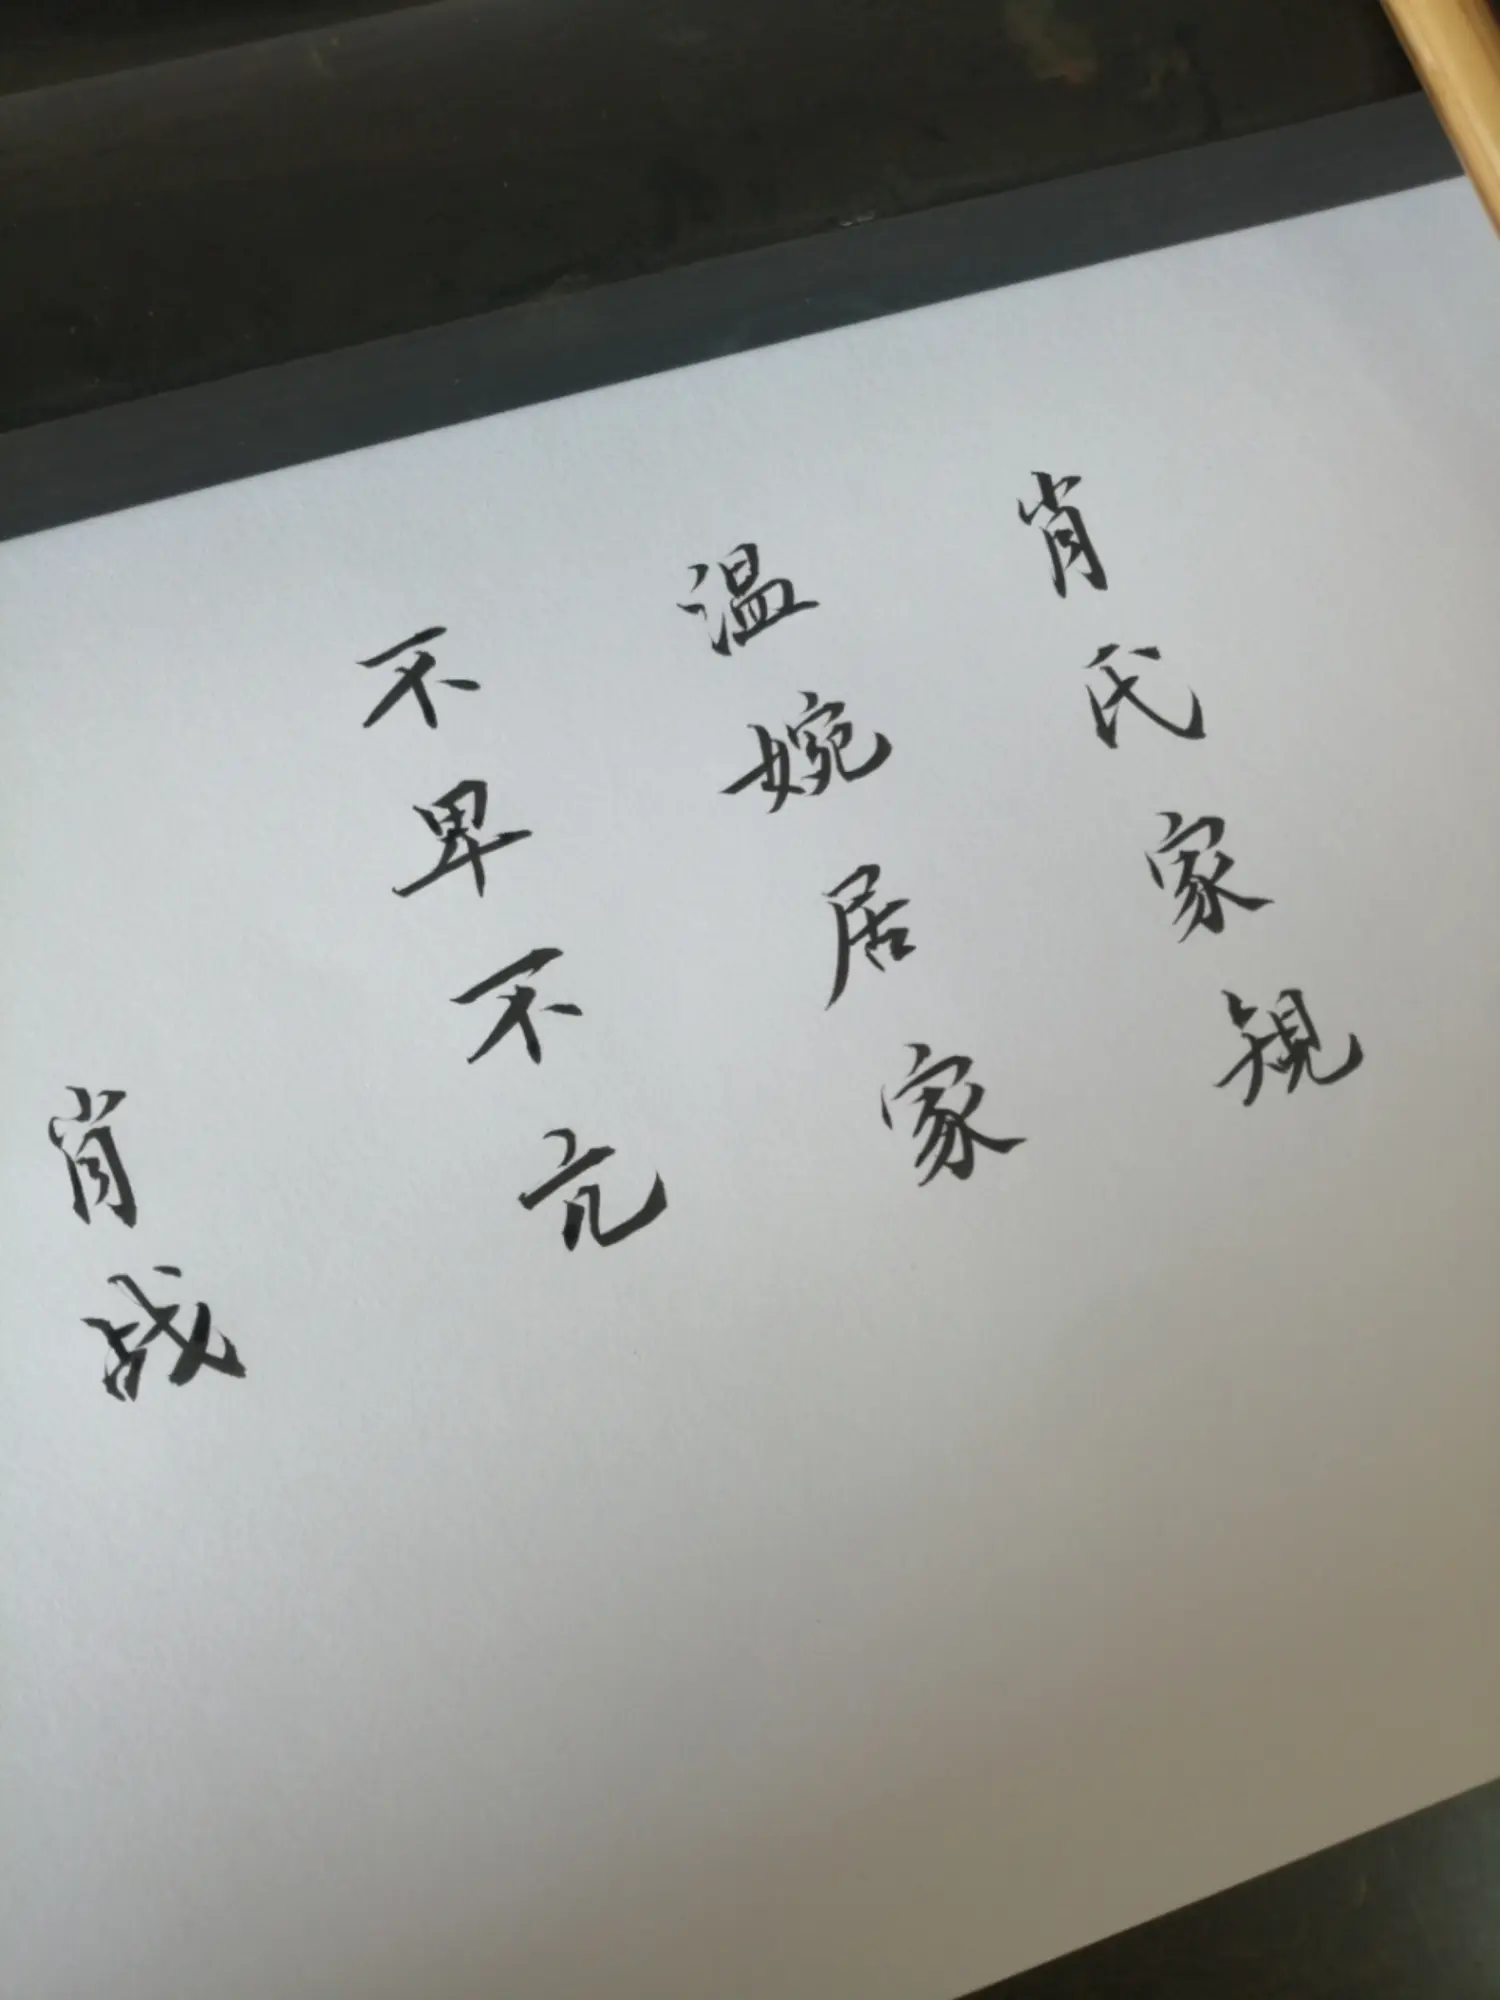 肖氏家规
温婉居家
不卑不亢
肖战